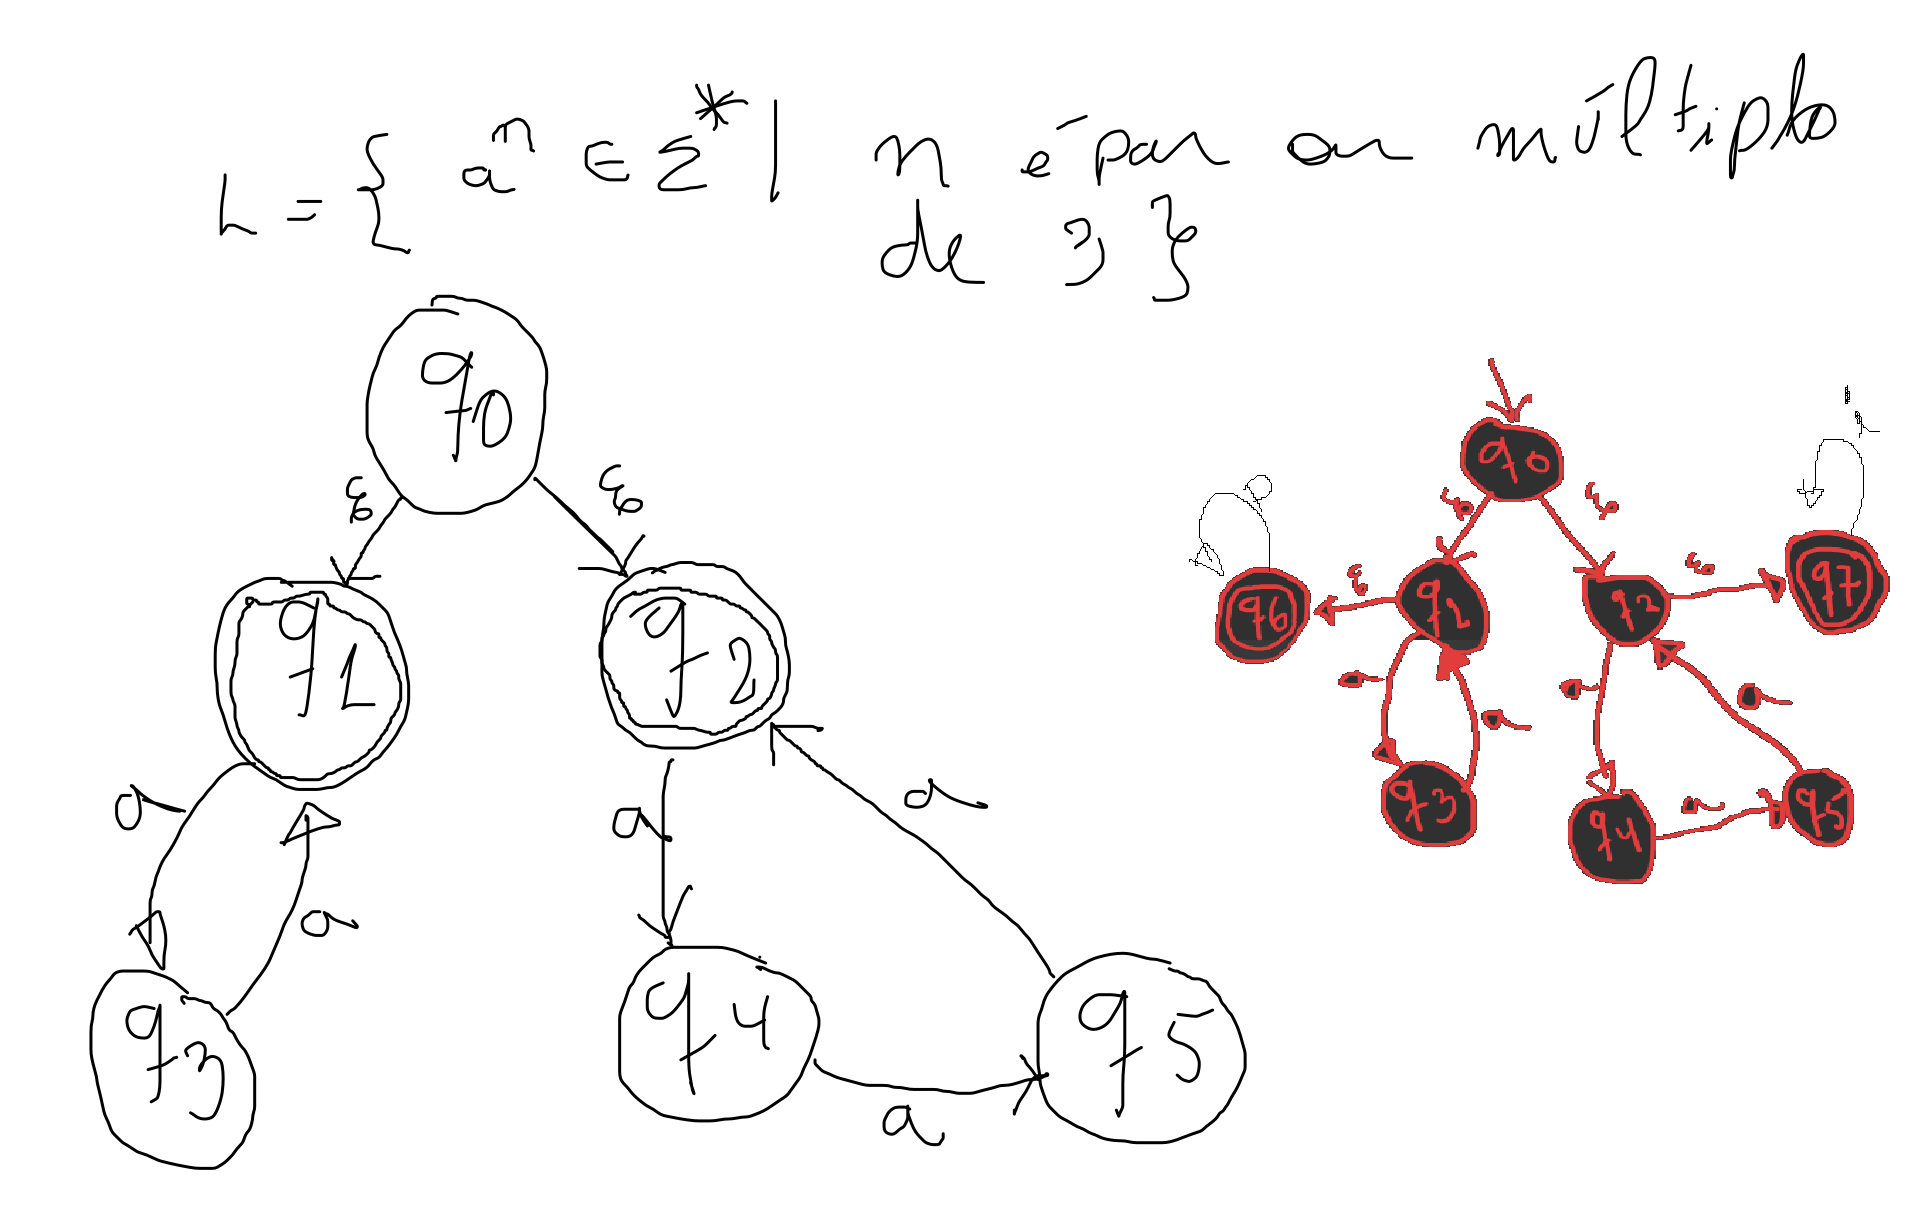 L = { aⁿ ∈ Σ* | n é par ou múltiplo
de 3 }
q0
ε ε
q1 q2
a a a a
q3 q4 q5
a
q0
ε ε
q6 ε q1 q2 ε q7
a a a a
q3 q4 a q5